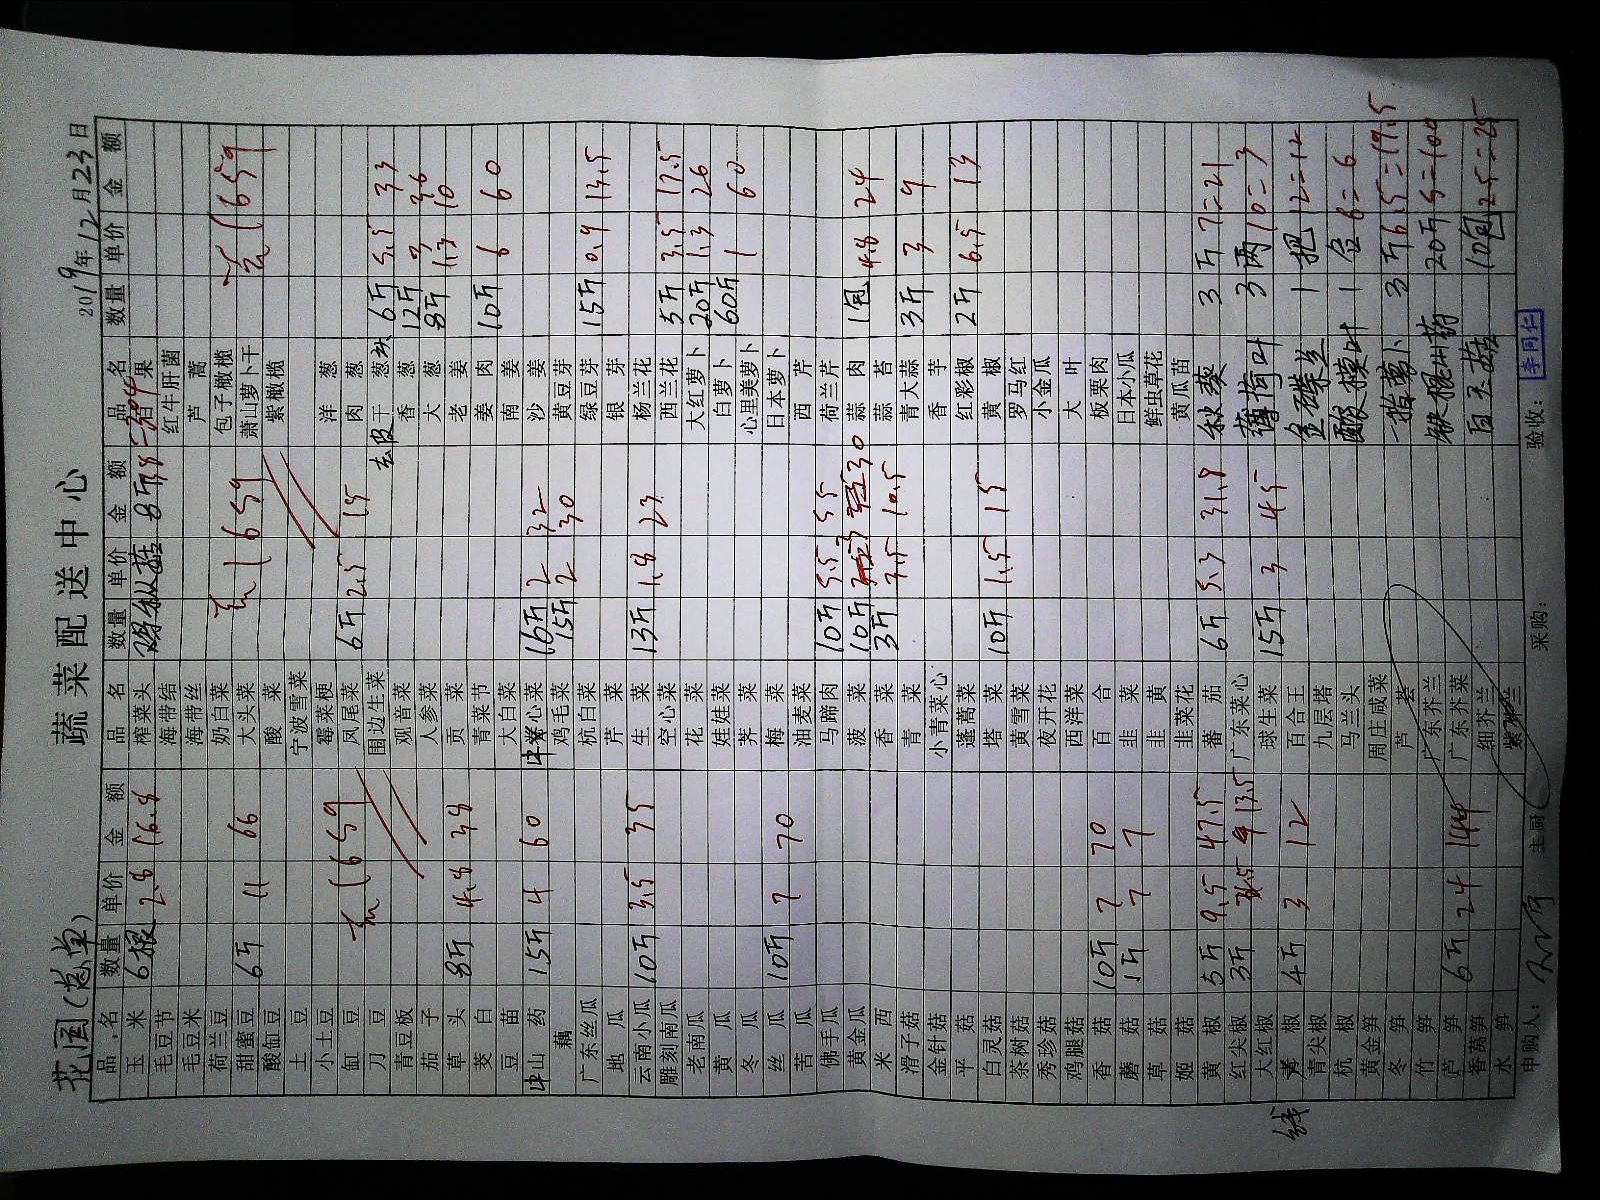 蔬菜配送中心
花园(总单) 2019年12月23日
品名 数量 单价 金额 品名 数量 单价 金额 品名 数量 单价 金额
玉米 6根 2.8 16.8 榨菜头 百果
毛豆节 海带结 红牛肝菌
毛豆米 海带丝 芦蒿
荷兰豆 奶白菜 包子橄榄
甜蜜豆 6斤 11 66 大头菜 萧山萝卜干
酸缸豆 酸菜 紫橄榄
土豆 宁波雪菜
小土豆 霉菜梗 洋葱
缸豆 凤尾菜 6斤 2.5 15 肉葱
刀豆 围边生菜 去皮干葱 6斤 5.5 33
青豆板 观音菜 香葱 12斤 3 36
茄子 人参菜 大葱 8斤 1.3 10
草头 8斤 4.8 38 贡菜 老姜
茭白 青菜节 姜肉 10斤 6 60
豆苗 大白菜 南姜
山药 15斤 4 60 心菜 16斤 2 32 沙姜
藕 鸡毛菜 15斤 2 30 黄豆芽
广东丝瓜 杭白菜 绿豆芽 15斤 0.9 13.5
地瓜 芹菜 银芽
云南小瓜 10斤 3.5 35 生菜 13斤 1.8 23 杨兰花
雕刻南瓜 空心菜 西兰花 5斤 3.5 17.5
老南瓜 花菜 大红萝卜 20斤 1.3 26
黄瓜 娃娃菜 白萝卜 60斤 1 60
冬瓜 荠菜 心里美萝卜
丝瓜 10斤 7 70 梅菜 日本萝卜
苦瓜 油麦菜 西芹
佛手瓜 马蹄肉 10斤 5.5 55 荷兰芹
黄金瓜 菠菜 10斤 30 蒜肉 1包 4.8 24
米西 香菜 3斤 3.5 10.5 蒜苔
滑子菇 青菜 青大蒜 3斤 3 9
金针菇 小青菜心 香芋
平菇 蓬蒿菜 红彩椒 2斤 6.5 13
白灵菇 塔菜 10斤 1.5 15 黄椒
茶树菇 黄雪菜 罗马红
秀珍菇 夜开花 小金瓜
鸡腿菇 西洋菜 大叶
香菇 10斤 7 70 百合 板栗肉
蘑菇 1斤 7 7 韭菜 日本小瓜
草菇 韭黄 鲜虫草花
姬菇 韭菜花 黄瓜苗
黄椒 5斤 9.5 47.5 蕃茄 6斤 5.3 31.8 秋葵 3斤 7=21
红尖椒 3斤 13.5 广东菜心 薄荷叶 3两 10=3
大红椒 球生菜 15斤 3 45 金碟丝 1把 12=12
线椒 4斤 3 12 百合王 酸模叶 1盒 6=6
青尖椒 九层塔
杭椒 马兰头 一指萝卜 3斤 6.5=19.5
黄金笋 周庄咸菜
冬笋 芦荟 铁棍山药 20斤 5=100
竹笋 广东芥兰 白玉菇 10包 2.5=25
芦笋 6斤 24 144 广东芥菜
香莴笋 细芥兰
水笋
申购人: 主厨 采购: 验收: 李同仁